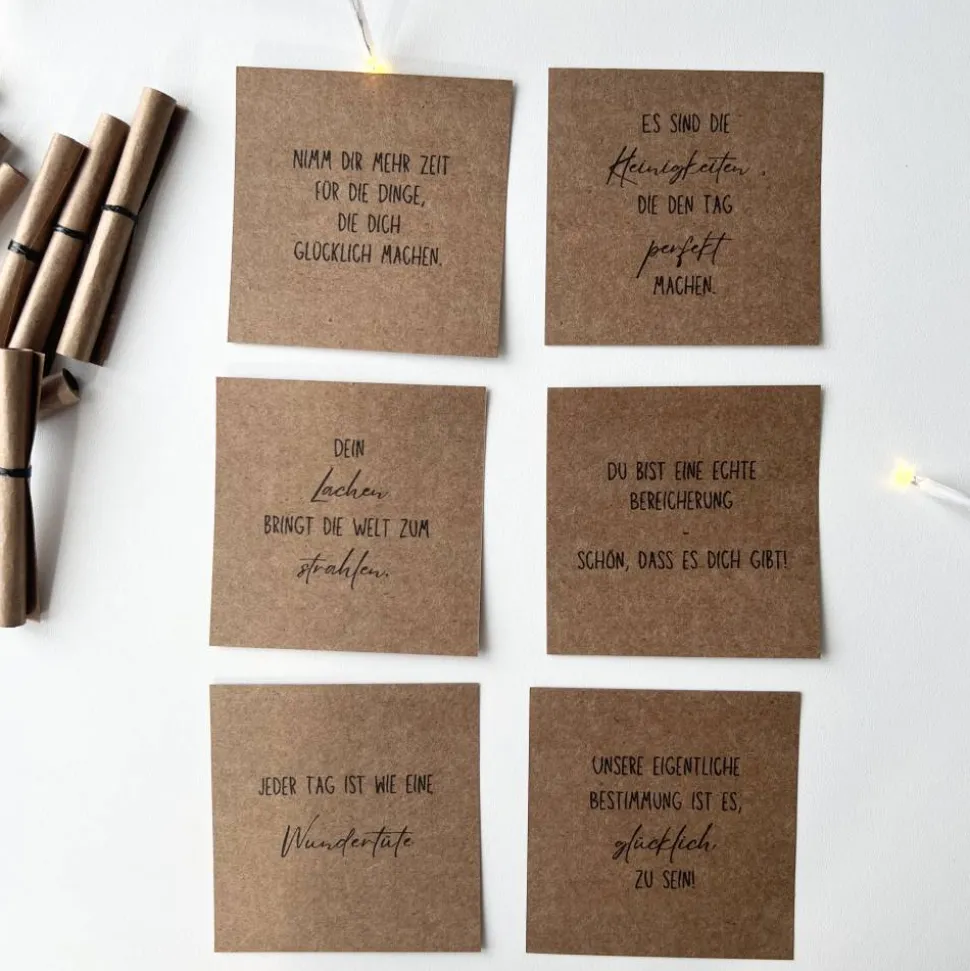 NIMM DIR MEHR ZEIT
FÜR DIE DINGE,
DIE DICH
GLÜCKLICH MACHEN.
ES SIND DIE
Kleinigkeiten,
DIE DEN TAG
perfekt
MACHEN.
DEIN
Lachen
BRINGT DIE WELT ZUM
strahlen.
DU BIST EINE ECHTE
BEREICHERUNG
-
SCHÖN, DASS ES DICH GIBT!
JEDER TAG IST WIE EINE
Wundertüte
UNSERE EIGENTLICHE
BESTIMMUNG IST ES,
glücklich
ZU SEIN!